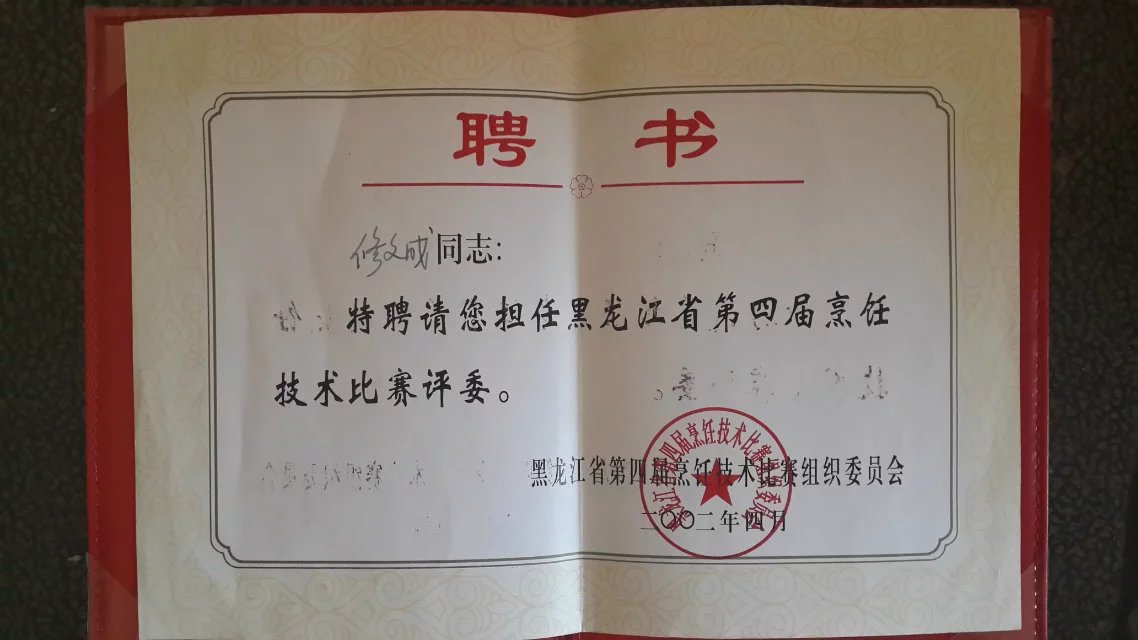 聘 书
修文成同志:
特聘请您担任黑龙江省第四届烹饪
技术比赛评委。
黑龙江省第四届烹饪技术比赛组织委员会
二〇〇二年四月
黑龙江省第四届烹饪技术比赛组织委员会